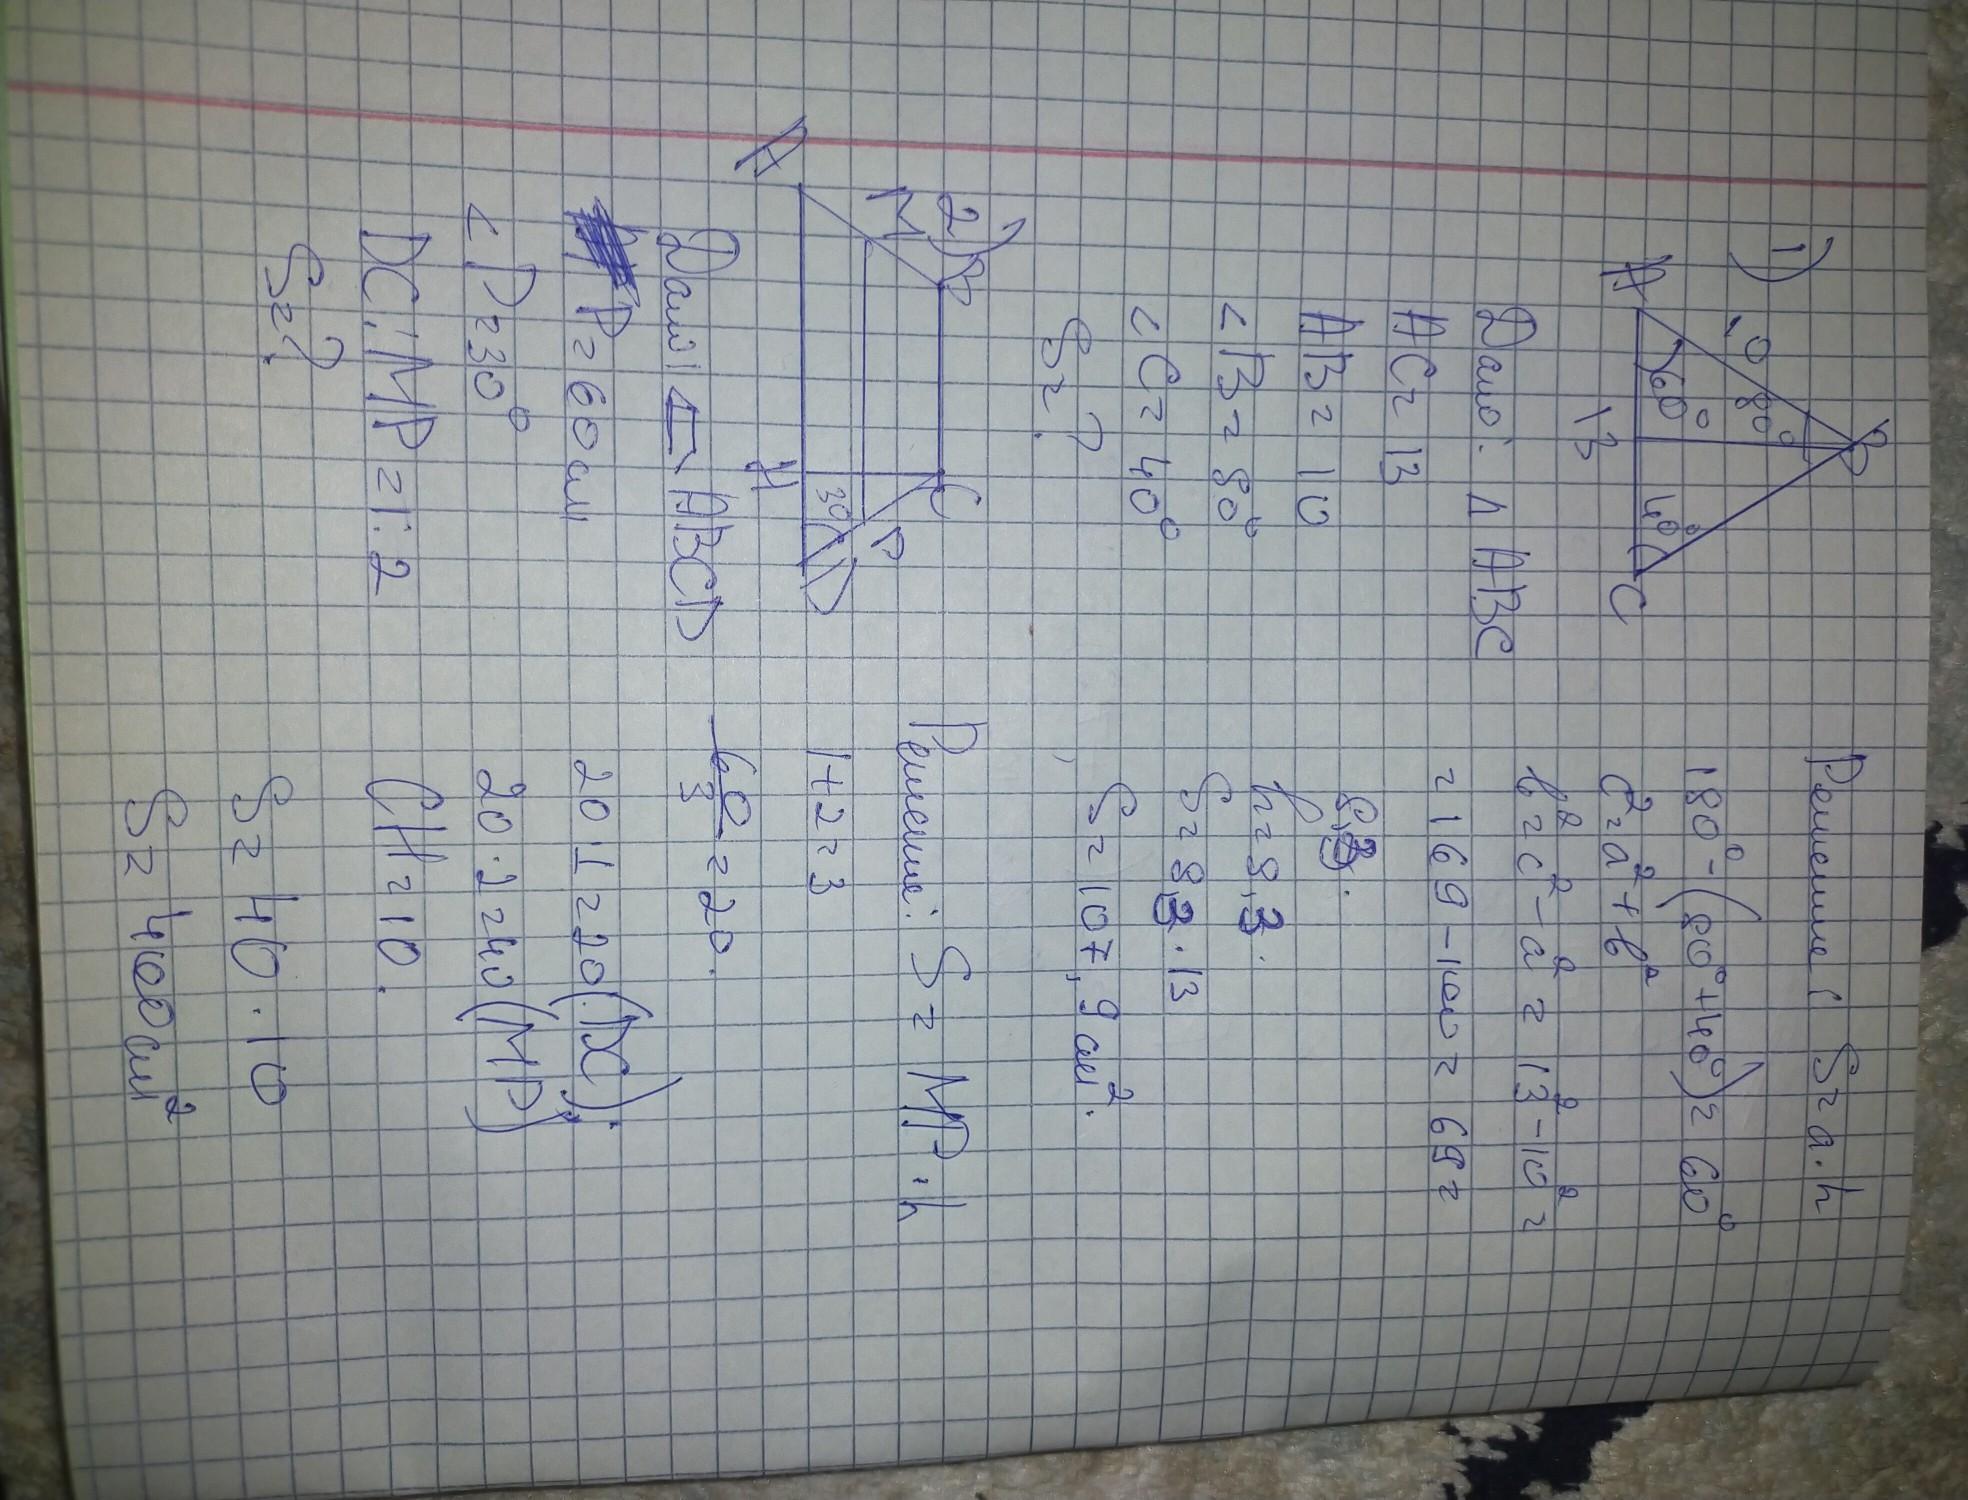 1)
B
10
80°
60°
40°
A
13
C
Дано: Δ ABC
AC = 13
AB = 10
<B = 80°
<C = 40°
S = ?
Решение: S = a · h
180° - (80° + 40°) = 60°
c² = a² + b²
b² = c² - a² = 13² - 10² =
= 169 - 100 = 69 =
8,3.
h = 8,3.
S = 8,3 · 13
S = 107,9 см².
2)
B
C
M
P
30°
A
H
D
Дано: ABCD
P = 60 см
<D = 30°
DC : MP = 1 : 2
S = ?
Решение: S = MP · h
1 + 2 = 3
60/3 = 20.
20 · 1 = 20 (DC);
20 · 2 = 40 (MP);
CH = 10.
S = 40 · 10
S = 400 см²